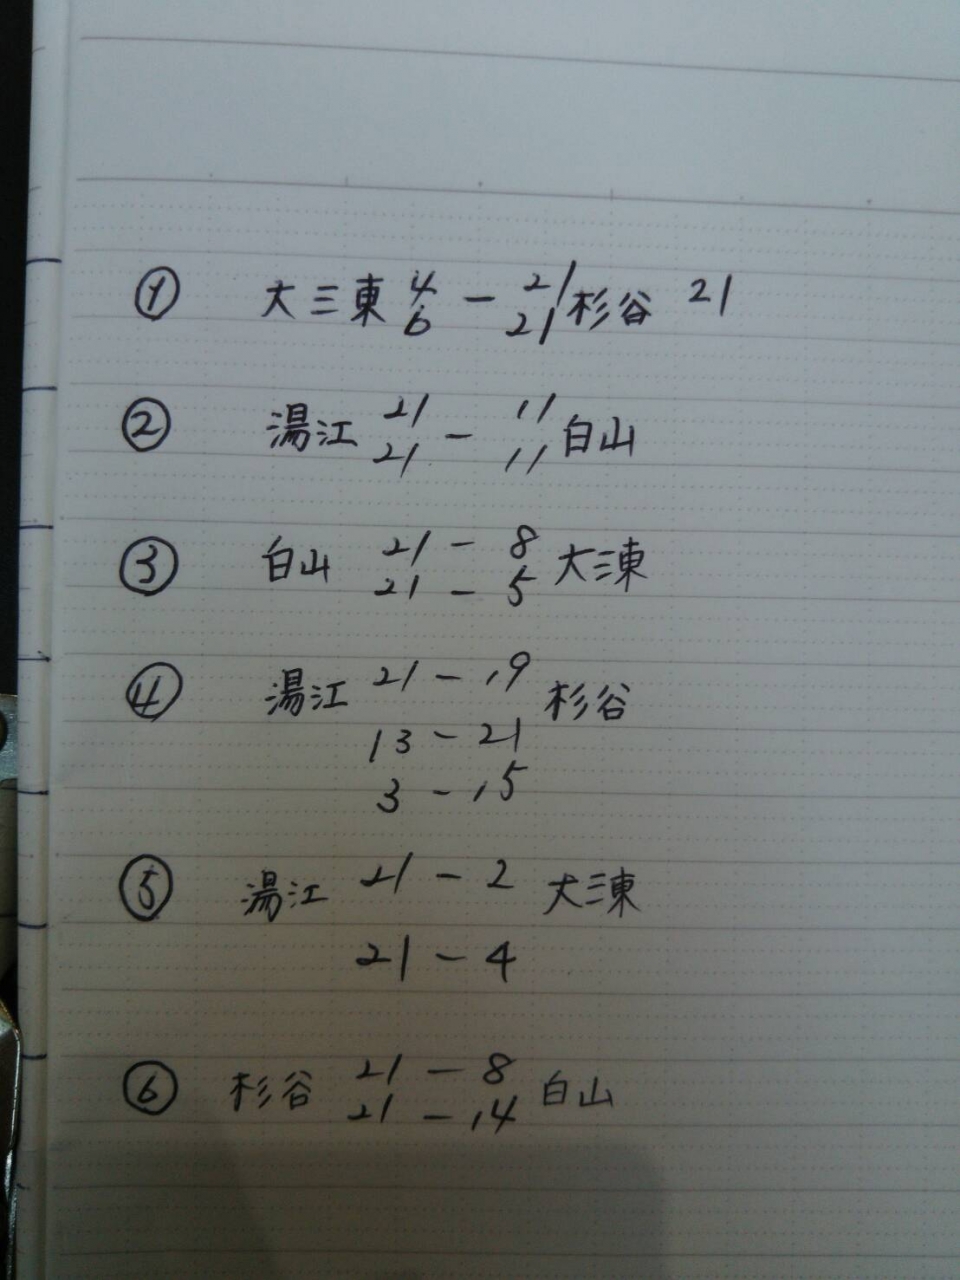 ① 大三東 4 - 21 杉谷 21
6 21
② 湯江 21 - 11 白山
21 11
③ 白山 21 - 8 大三東
21 - 5
④ 湯江 21 - 19 杉谷
13 - 21
3 - 15
⑤ 湯江 21 - 2 大三東
21 - 4
⑥ 杉谷 21 - 8 白山
21 - 14